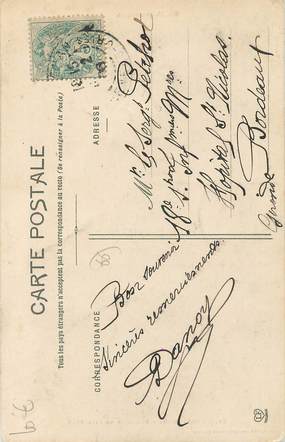 CARTE POSTALE
Tous les pays étrangers n'acceptent pas la correspondance au recto (Se renseigner à la Poste)
CORRESPONDANCE
Bon souvenir
Sincères remerciements
Danoy
ADRESSE
Mr le Sergt
18e Son Inf. Mres
Hôpital St Nicolas
Bordeaux
Gironde